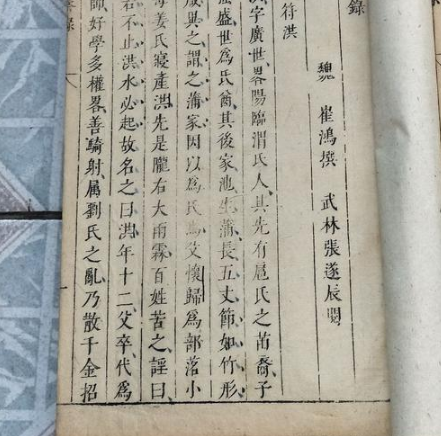 錄
魏　崔鴻撰　武林張遂辰閱
符洪
洪字廣世畧陽臨渭氏人其先有扈氏之苗裔子
盛世爲氏酋其後家池生蒲長五丈節如竹形
咸異之謂之蒲家因以爲氏焉父懷歸爲部落小
母姜氏寢產洪先是隴右大雨霖百姓苦之謠曰
若不止洪水必起故名之曰洪年十二父卒代爲
帥好學多權畧善騎射属劉氏之亂乃散千金招
錄